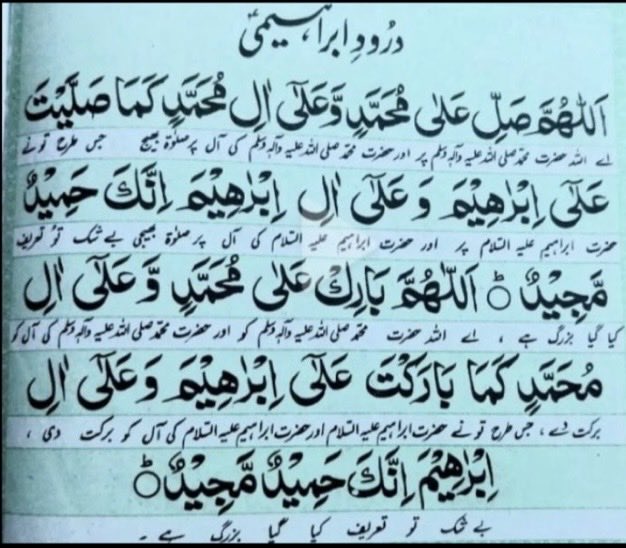 درودِ ابراہیمیؑ
اَللّٰهُمَّ صَلِّ عَلٰى مُحَمَّدٍ وَّعَلٰٓى اٰلِ مُحَمَّدٍ كَمَا صَلَّيْتَ
اے اللہ حضرت محمد صلی اللہ علیہ وآلہٖ وسلم پر اور حضرت محمد صلی اللہ علیہ وآلہٖ وسلم کی آل پر صلوٰۃ بھیج جس طرح تو نے
عَلٰٓى اِبْرٰهِيْمَ وَ عَلٰٓى اٰلِ اِبْرٰهِيْمَ اِنَّكَ حَمِيْدٌ
حضرت ابراہیم علیہ السلام پر اور حضرت ابراہیم علیہ السلام کی آل پر صلوٰۃ بھیجی بے شک تو تعریف
مَّجِيْدٌ ○ؕ اَللّٰهُمَّ بَارِكْ عَلٰى مُحَمَّدٍ وَّ عَلٰٓى اٰلِ
کیا گیا بزرگ ہے ، اے اللہ حضرت محمد صلی اللہ علیہ وآلہٖ وسلم کو اور حضرت محمد صلی اللہ علیہ وآلہٖ وسلم کی آل کو
مُحَمَّدٍ كَمَا بَارَكْتَ عَلٰٓى اِبْرٰهِيْمَ وَ عَلٰٓى اٰلِ
برکت دے ، جس طرح تو نے حضرت ابراہیم علیہ السلام اور حضرت ابراہیم علیہ السلام کی آل کو برکت دی ،
اِبْرٰهِيْمَ اِنَّكَ حَمِيْدٌ مَّجِيْدٌ ○ؕ
بے شک تو تعریف کیا گیا بزرگ ہے ۔